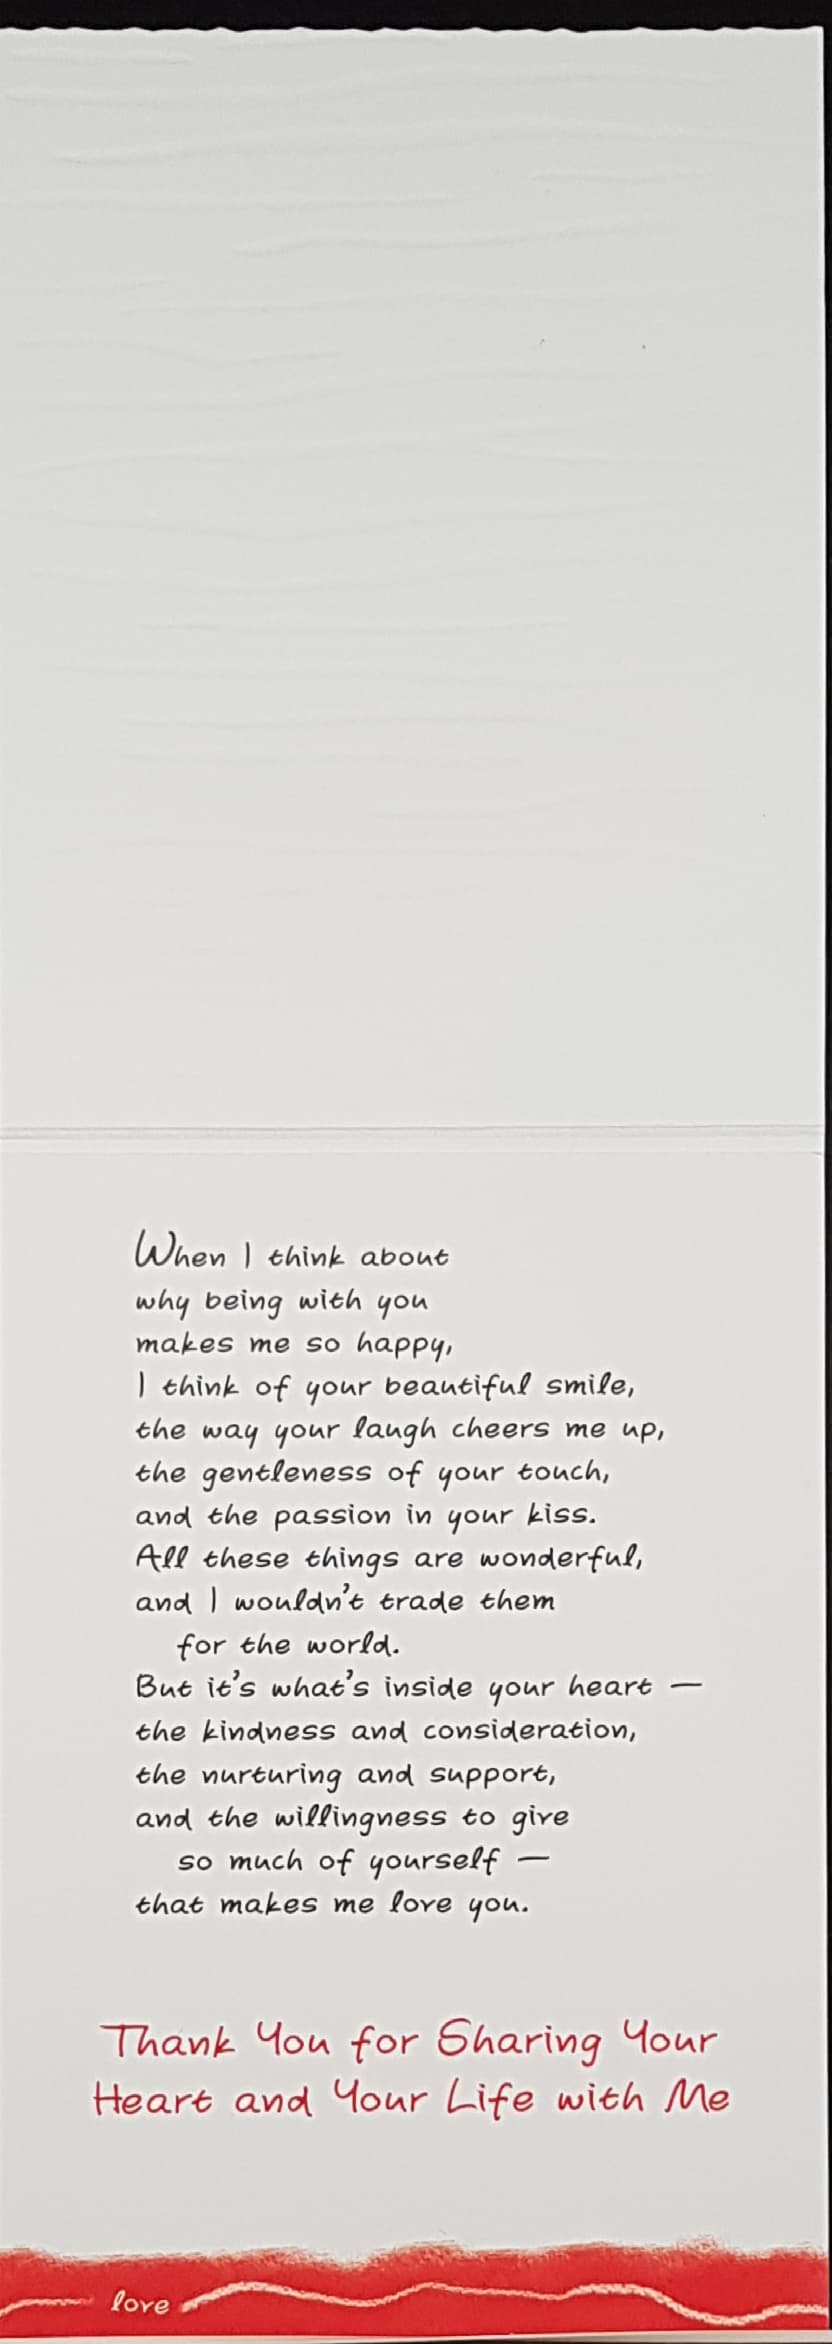 When I think about
why being with you
makes me so happy,
I think of your beautiful smile,
the way your laugh cheers me up,
the gentleness of your touch,
and the passion in your kiss.
All these things are wonderful,
and I wouldn't trade them
for the world.
But it's what's inside your heart —
the kindness and consideration,
the nurturing and support,
and the willingness to give
so much of yourself —
that makes me love you.
Thank You for Sharing Your
Heart and Your Life with Me
love